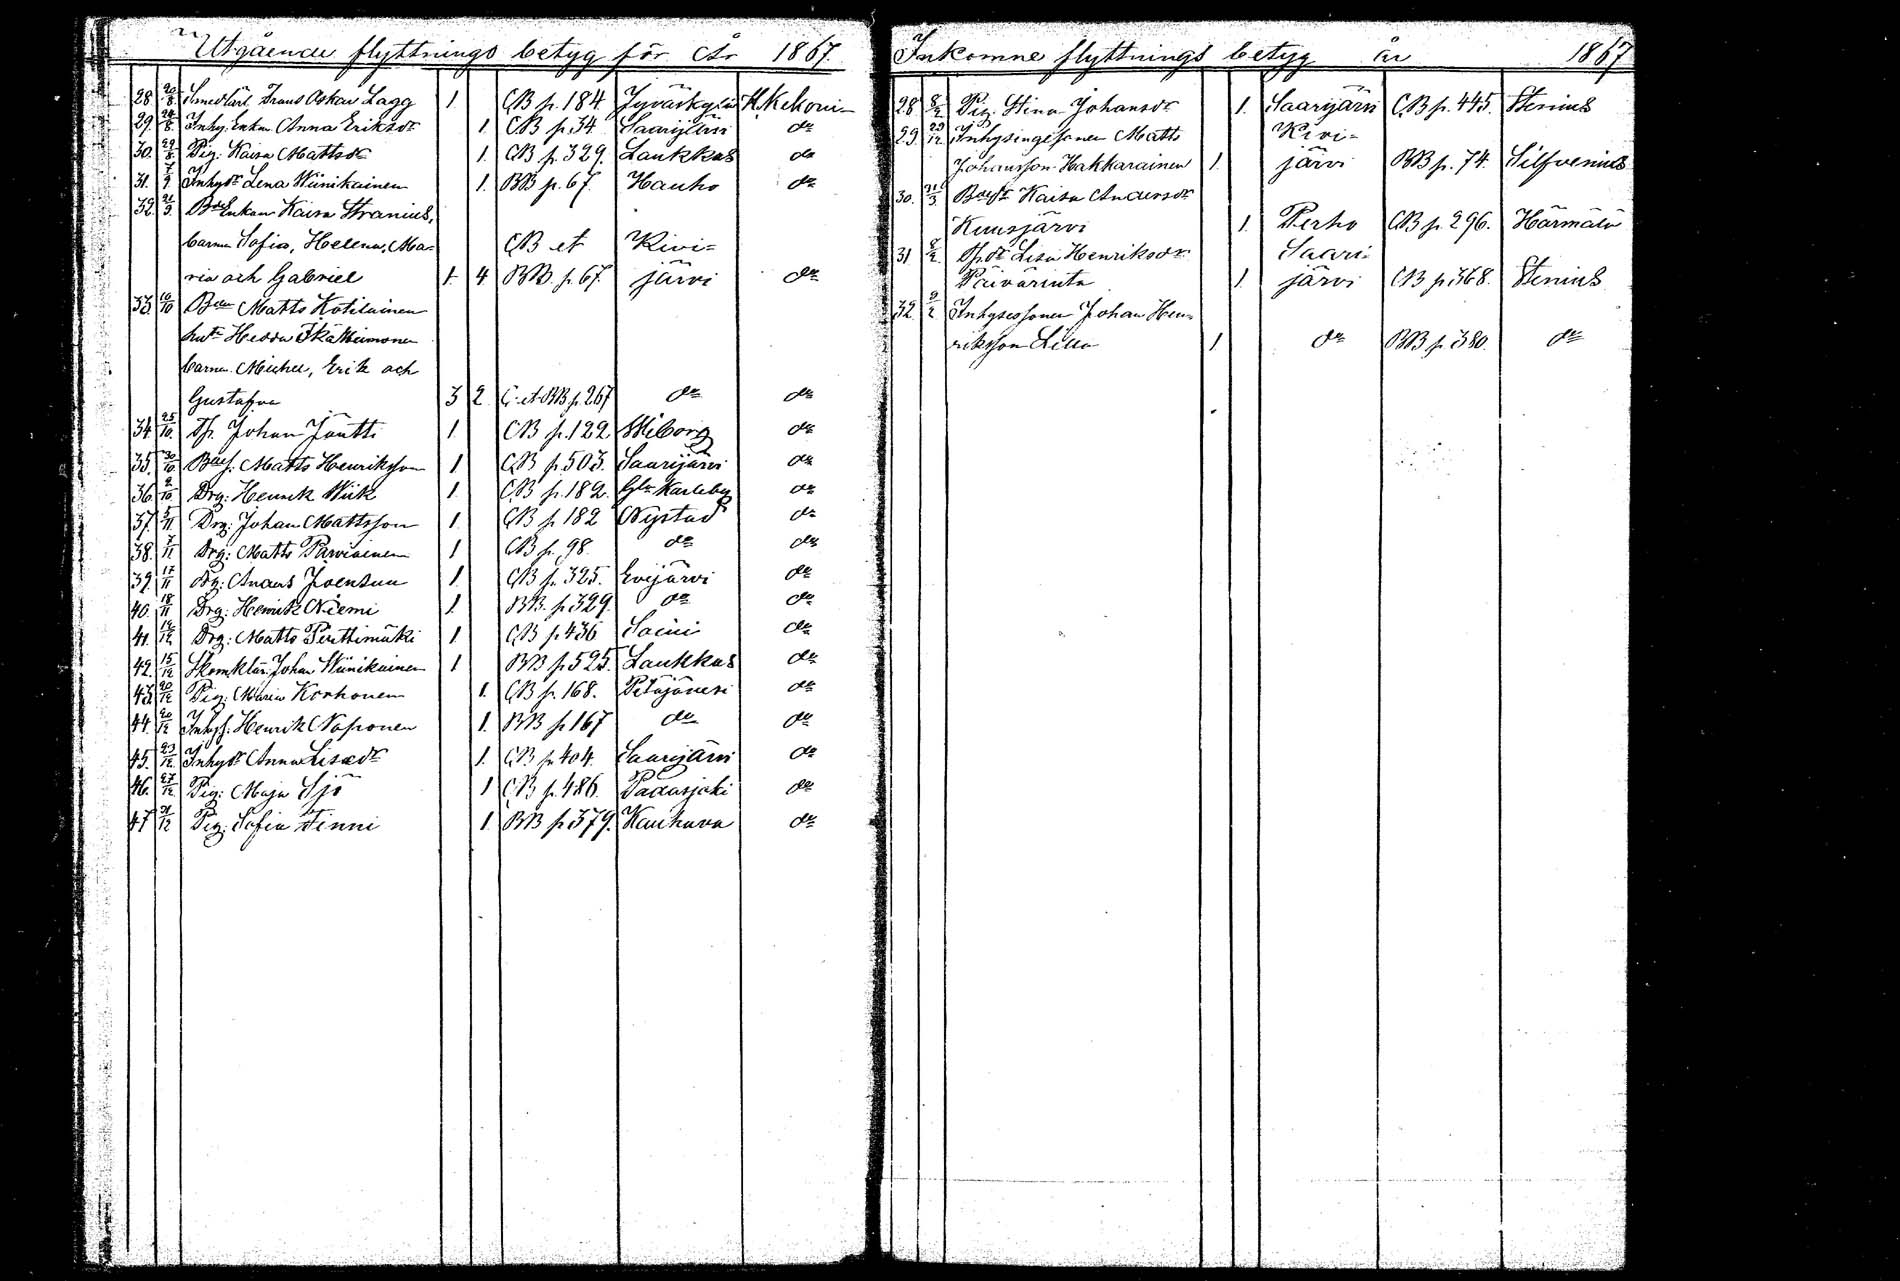 Utgående flyttnings betyg för År 1867.
28. 20/8. Smedlärl. Frans Oskar Lagg 1 CB p. 184 Jyväskylä K. Kekoni
29. 24/8. Inhy: Enkan Anna Eriksdr 1. CB p. 34 Saarijärvi do
30. 29/8. Pig: Kaisa Mattsdr 1. CB p. 329. Laukkas do
31. 7/9. Inhydr Lena Wiinikainen 1. BB p. 67. Hauho do
32. 21/9. Bdes Enkan Kaisa Stranius,
barnen Sofia, Helena, Ma= CB et Kivi=
ria och Gabriel 1. 4 BB. p. 67. järvi do
33. 10/10 Bden Matts Kotilainen
hust. Hedda
barnen Michel, Erik och
Gustafva 3 2 C. et BB p. 267 do do
34. 25/10. Tp. Johan Jäntti 1. CB p. 122 Wiborg do
35. 30/10. Bdes: Matts Henriksson 1 CB p. 503. Saarijärvi do
36. 2/10. Drg: Henrik Wiik 1. CB p. 182. Gla Karleby do
37. 5/11 Drg: Johan Mattsson 1. CB p 182 Nystad do
38. 7/11 Drg: Matts Parviainen 1 CB p. 98. do do
39. 17/11 Drg: Anders Joensuu 1. CB p. 325. Evijärvi do
40. 18/11 Drg: Henrik Niemi 1. BB. p. 329. do do
41. 12/12. Drg: Matts Perttimäki 1. CB p 436 Soini do
42. 15/12 Skom.klär. Johan Wiinikainen 1 BB p 525. Laukkas do
43. 20/12 Pig: Maria Korhonen 1. CB p. 168. Pitäjävesi do
44. 20/12 Inhys: Henrik Noponen 1. BB p 167 do do
45. 23/12. Inhydr Anna Lisadr 1. CB p. 404. Saarijärvi do
46. 27/12. Pig: Maja Sjö 1 CB p. 486. Padasjoki do
47 31/12 Pig: Sofia Finni 1. BB p 379. Kauhava do
Inkomne flyttnings betyg år 1867
28 8/2 Pig. Stina Johansdr 1. Saarijärvi CB p. 445. Stenius
29. 29/12. Inhysingesonen Matts Kivi=
Johansson Hakkarainen 1. järvi BB p. 74. Silfvenius
30. 31/3 Bdedr Kaisa Andersdr
Kuusjärvi 1. Perho CB p. 296. Härmälä
31 8/2. Tp.dr Lisa Henriksdr Saari
Päivärinta 1. järvi CB p 368. Stenius
32. 9/2 Inhysessonen Johan Hen=
riksson Lilla 1 do BB p. 380. do